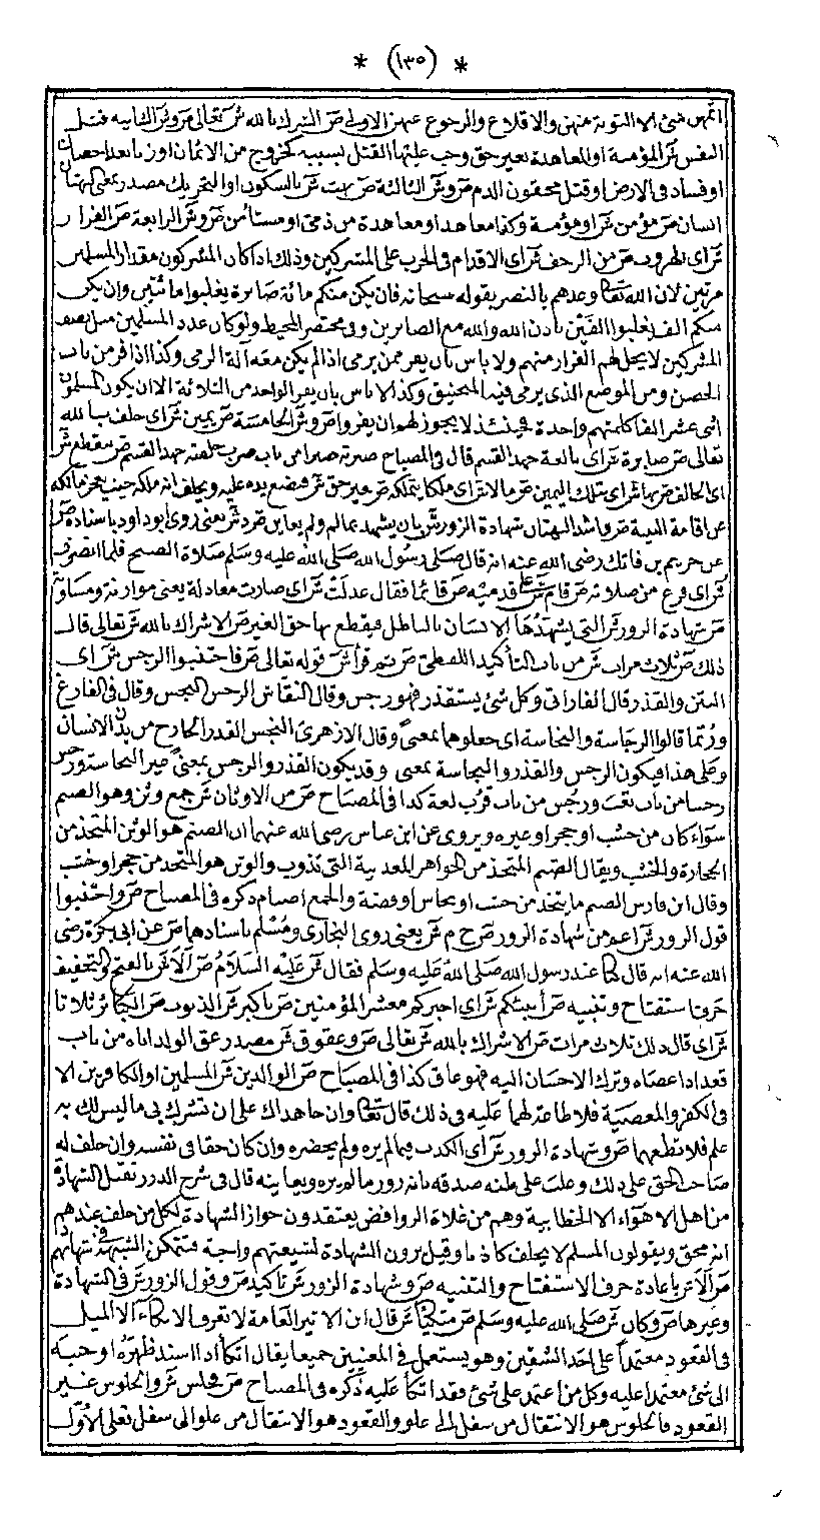 * (١٣٥) *
اثمهن شئ الا التوبة منهن والاقلاع والرجوع عنهن الاولى ص الشرك بالله ش تعالى ص و ش الثانية قتل
النفس ش المؤمنة او المعاهدة بغير حق وجب عليها القتل بسببه كخروج من الايمان او زنا بعد احصان
او فساد فى الارض او قتل محقون الدم ص و ش الثالثة ص بهت ش بالسكون او التحريك مصدر بمعنى البهتان
انسان ص مؤمن ش او مؤمنة وكذا معاهد او معاهدة من ذمى او مستأمن ص و ش الرابعة ص الفرار
ش اى الهروب ص من الزحف ش اى الاقدام فى الحرب على المشركين وذلك اذا كان المشركون مقدار المسلمين
مرتين لان الله تعالى وعدهم بالنصر بقوله سبحانه فان يكن منكم مائة صابرة يغلبوا مائتين وان يكن
منكم الف يغلبوا الفين باذن الله والله مع الصابرين وفى مختصر المحيط ولو كان عدد المسلمين مثل نصف
المشركين لا يحل لهم الفرار منهم ولا باس بان يفر ممن يرمى اذا لم يكن معه آلة الرمى وكذا اذا فر من باب
الحصن ومن الموضع الذى يرمى فيه المنجنيق وكذا لا باس بان يفر الواحد من الثلاثة الا ان يكون المسلمون
اثنى عشر الفا كلمتهم واحدة فحينئذ لا يجوز لهم ان يفروا ص و ش الخامسة ص يمين ش اى حلف بالله
تعالى ص صابرة ش اى بالغة جهد القسم قال فى المصباح صبرته صبرا من باب ضرب حلفته جهد القسم ص يقطع ش
اى الحالف ص بها ش اى بتلك اليمين ص مالا ش اى ملكا يتملكه ص بغير حق ش فيضع يده عليه ويحلف انه ملكه حيث عجز مالكه
عن اقامة البينة ص واشد البهتان شهادة الزور ش بان يشهد بما لم يعلم ولم يعاين ص د ش يعنى روى ابو داود باسناده ص
عن خريم بن فاتك رضى الله عنه انه قال صلى رسول الله صلى الله عليه وسلم صلاة الصبح فلما انصرف
ش اى فرغ من صلاته ص قام ش على قدميه ص قائما فقال عدلت ش اى صارت معادلة يعنى موازنة ومساوية
ص شهادة الزور ش التى يشهدها الانسان بالباطل فيقطع بها حق الغير ص الاشراك بالله ش تعالى قال
ذلك ص ثلاث مرات ش من باب التأكيد اللفظى ص ثم قرأ ش قوله تعالى ص فاجتنبوا الرجس ش اى
النتن والقذر قال الفارابى وكل شئ يستقذر فهو رجس وقال النقاش الرجس النجس وقال فى البارع
وربما قالوا الرجاسة والنجاسة اى جعلوهما بمعنى وقال الازهرى النجس القذر الخارج من بدن الانسان
وعلى هذا فيكون الرجس والقذر والنجاسة بمعنى وقد يكون القذر والرجس بمعنى غير النجاسة ورجس
رجسا من باب تعب ورجس من باب قرب لغة كذا فى المصباح ص من الاوثان ش جمع وثن وهو الصنم
سواء كان من خشب او حجر او غيره ويروى عن ابن عباس رضى الله عنهما ان الصنم هو الوثن المتخذ من
الحجارة والخشب ويقال الصنم المتخذ من الجواهر المعدنية التى تذوب والوثن هو المتخذ من حجر او خشب
وقال ابن فارس الصنم ما يتخذ من خشب او نحاس او فضة والجمع اصنام ذكره فى المصباح ص واجتنبوا
قول الزور ش اعم من شهادة الزور ص خ م ش يعنى روى البخارى ومسلم باسنادهما ص عن ابى بكرة رضى
الله عنه انه قال كنا عند رسول الله صلى الله عليه وسلم فقال ش عليه السلام ص ألا ش بالفتح والتخفيف
حرف استفتاح وتنبيه ص أنبئكم ش اى اخبركم معشر المؤمنين ص باكبر ش الذنوب ص الكبائر ثلاثا
ش اى قال ذلك ثلاث مرات ص الاشراك بالله ش تعالى ص وعقوق ش مصدر عق الولد اباه من باب
قعد اذا عصاه وترك الاحسان اليه فهو عاق كذا فى المصباح ص الوالدين ش المسلمين او الكافرين الا
فى الكفر والمعصية فلا طاعة لهما عليه فى ذلك قال تعالى وان جاهداك على ان تشرك بى ما ليس لك به
علم فلا تطعهما ص وشهادة الزور ش اى الكذب فيما لم يره ولم يحضره وان كان حقا فى نفسه وان حلف له
صاحب الحق على ذلك وغلب على ظنه صدقه بانه زور ما لم يره ويعاينه قال فى شرح الدرر تقبل الشهادة
من اهل الاهواء الا الخطابية وهم من غلاة الروافض يعتقدون جواز الشهادة لكل من حلف عندهم
انه محق ويقولون المسلم لا يحلف كاذبا وقيل يرون الشهادة لشيعتهم واجبة فتتمكن الشبهة فى شهاداتهم
ص ألا ش باعادة حرف الاستفتاح والتنبيه ص وشهادة الزور ش تاكيد ص وقول الزور ش فى الشهادة
وغيرها ص وكان ش صلى الله عليه وسلم ص متكئا ش قال ابن الاثير العامة لا تعرف الاتكاء الا الميل
فى القعود معتمدا على احد الشقين وهو يستعمل فى المعنيين جميعا يقال اتكأ اذا اسند ظهره او جنبه
الى شئ معتمدا عليه وكل من اعتمد على شئ فقد اتكأ عليه ذكره فى المصباح ص فجلس ش والجلوس غير
القعود فالجلوس هو الانتقال من سفل الى علو والقعود هو الانتقال من علو الى سفل فعلى الاول